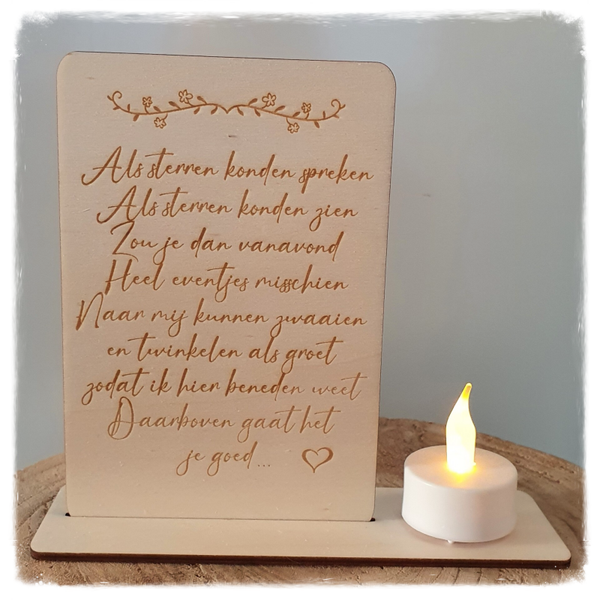 Als sterren konden spreken
Als sterren konden zien
Zou je dan vanavond
Heel eventjes misschien
Naar mij kunnen zwaaien
en twinkelen als groet
zodat ik hier beneden weet
Daarboven gaat het
je goed...